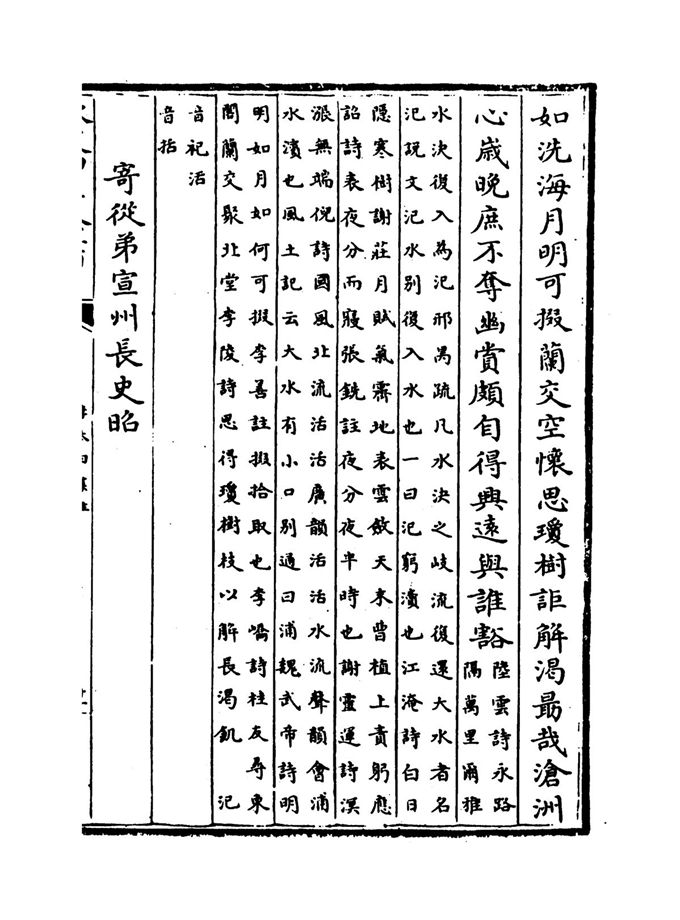 如洗海月明可掇蘭交空懷思瓊樹詎解渴勗哉滄洲
心歲晚庶不奪幽賞頗自得興遠與誰豁
陸雲詩永路
隔萬里爾雅
水決復入為汜邢昺疏凡水決之岐流復還大水者名
汜說文汜水別復入水也一曰汜窮瀆也江淹詩白日
隱寒樹謝莊月賦氣霽地表雲斂天末曹植上責躬應
詔詩表夜分而寢張銑註夜分夜半時也謝靈運詩溟
漲無端倪詩國風北流活活廣韻活活水流聲韻會浦
水濱也風土記云大水有小口別通曰浦魏武帝詩明
明如月如何可掇李善註掇拾取也李嶠詩桂友尋東
閣蘭交聚北堂李陵詩思得瓊樹枝以解長渴飢 汜
音祀活
音括
寄從弟宣州長史昭